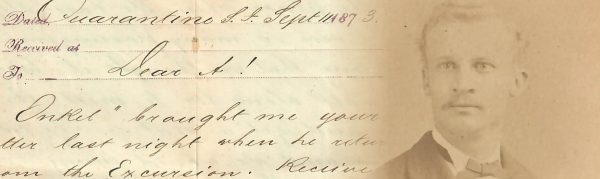 Dated, Quarantine S.I. Sept 11 1873.
Received at
To Dear A!
"Onkel" brought me your
tter last night when he retur
om the Excursion. Receive